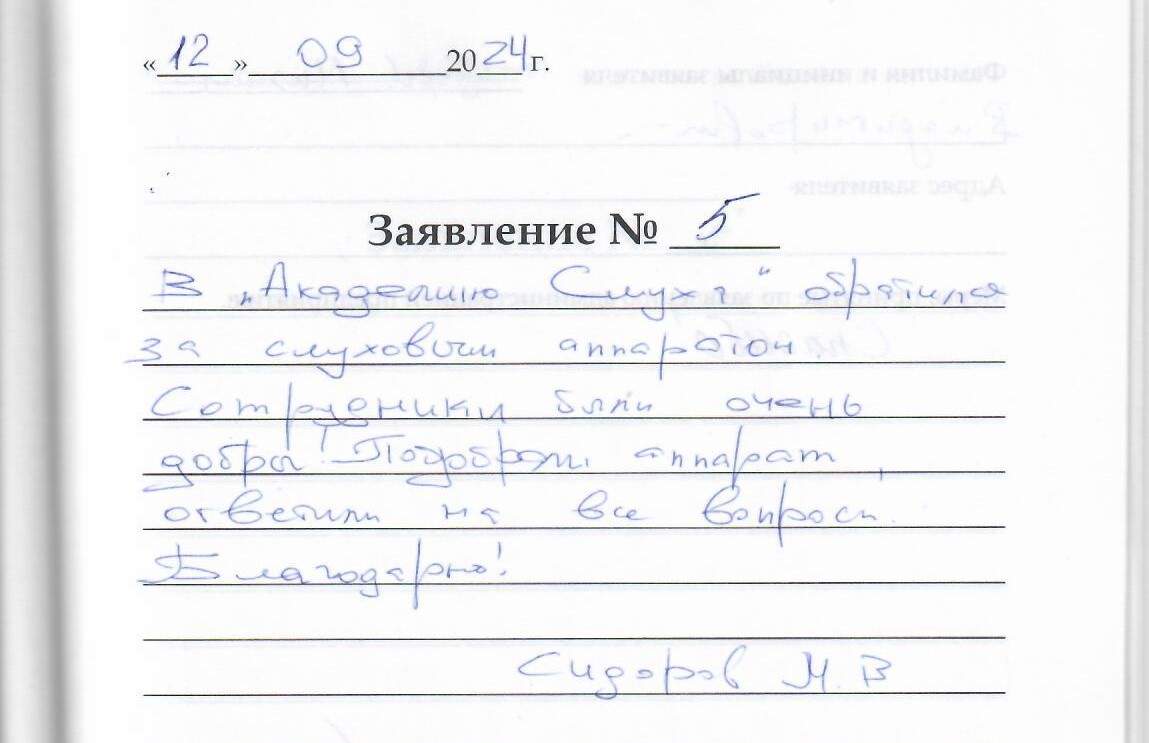 «12» 09 2024 г.
Заявление № 5
В „Академию Слуха" обратился
за слуховым аппаратом
Сотрудники были очень
добры! Подобрали аппарат,
ответили на все вопросы.
Благодарю!
Сидоров М.В